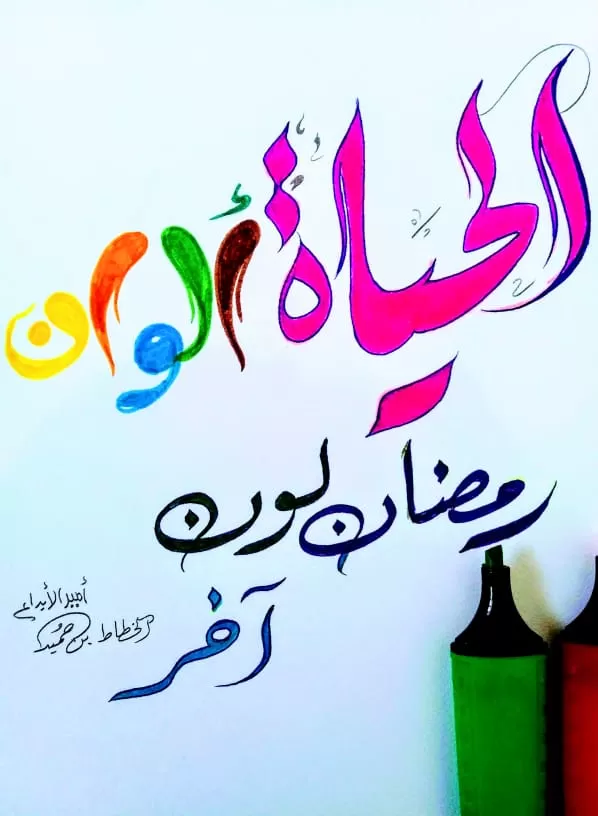 الحياة ألوان
رمضان لون
آخر
أمير الإبداع
الخطاط بن حميد